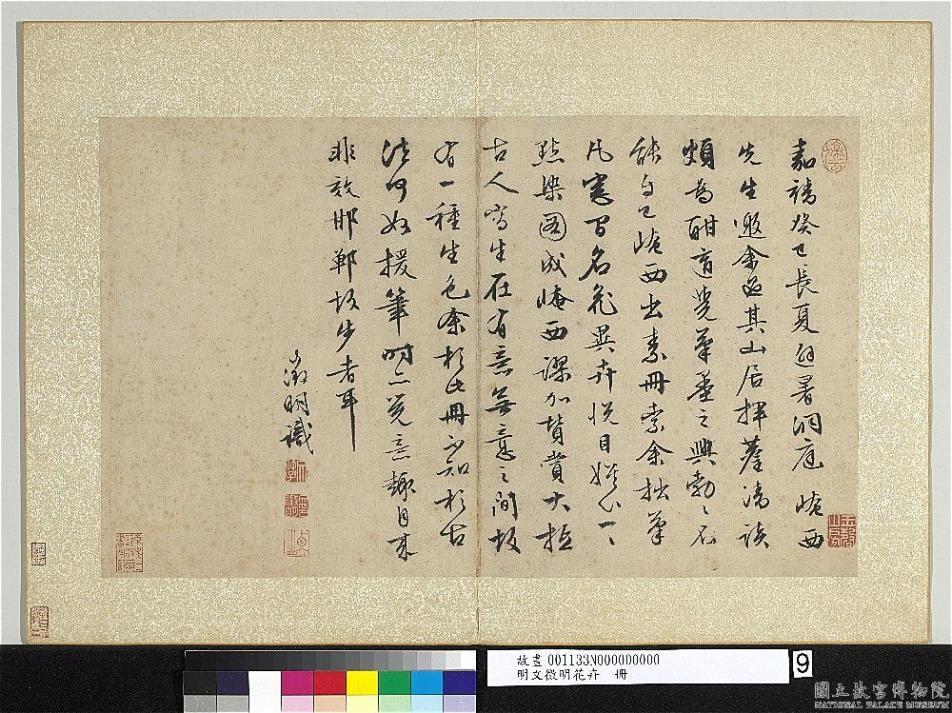 嘉靖癸巳長夏避暑洞庭 崦西
先生邀余過其山居揮麈清談
頗為酣適覺筆墨之興勃〻不
能自已崦西出素冊索余拙筆
凡窓間名花異卉悅目娛心一〻
點染圖成崦西謬加賛賞大抵
古人寫生在有意無意之間故
有一種生色余於此冊不知於古
法何如援筆時亦覺意趣自來
非效邯鄲故步者耳
徵明識
故畫 001133N000000000
明文徵明花卉 冊
9
國立故宮博物院
NATIONAL PALACE MUSEUM